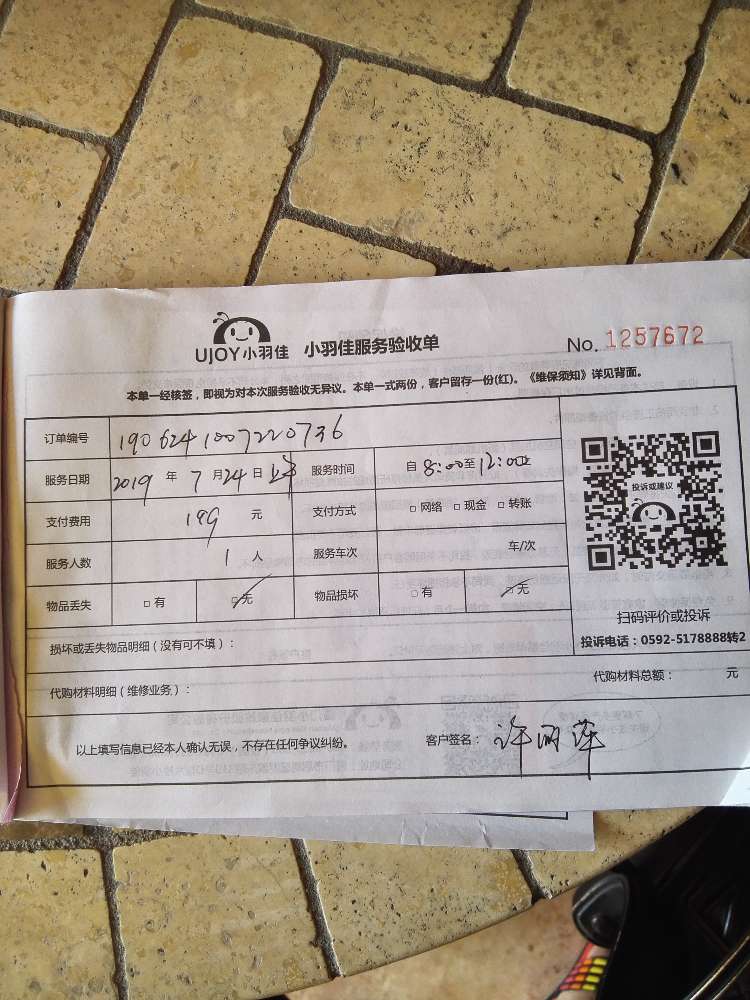 UJOY小羽佳 小羽佳服务验收单 No. 1257672
本单一经核签，即视为对本次服务验收无异议。本单一式两份，客户留存一份(红)。《维保须知》详见背面。
订单编号 1906241007220736
服务日期 2019 年 7 月 24 日 服务时间 自 8:00 至 12:00止
支付费用 199 元 支付方式 □ 网络 □ 现金 □ 转账
服务人数 1 人 服务车次 车/次
物品丢失 □ 有 □ 无 物品损坏 □ 有 □ 无
投诉或建议
扫码评价或投诉
投诉电话：0592-5178888转2
损坏或丢失物品明细（没有可不填）：
代购材料明细（维修业务）： 代购材料总额： 元
以上填写信息已经本人确认无误，不存在任何争议纠纷。 客户签名： 许丽萍